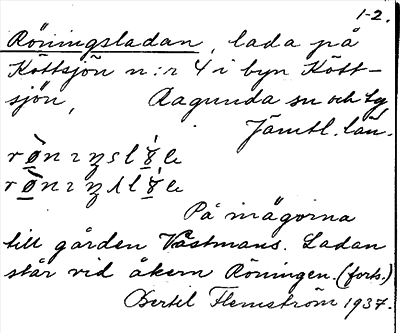 1-2.
Röningsladan, lada på
Köttsjön n:r 4 i byn Kött-
sjön, Ragunda sn och tg
Jämtl. län.
På inägorna
till gården Västmans. Ladan
står vid åkern Röningen. (forts.)
Bertil Flemström 1937.